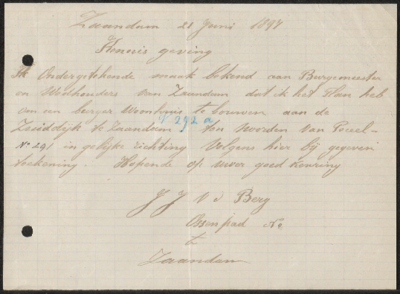 Zaandam 23 Juni 1897
Kennis geving
Ik Ondergetekende maak bekend aan Burgemeester
en Wethouders van Zaandam dat ik het Plan heb
om een burger Woonhuis te bouwen aan de
Zuiddijk te Zaandam ten Noorden van Perceel
V 292 a
No 291 in gelijke richting Volgens hier bij gegeven
teekening. Hopende op uwer goed keuring
J J V d Berg
te
Zaandam